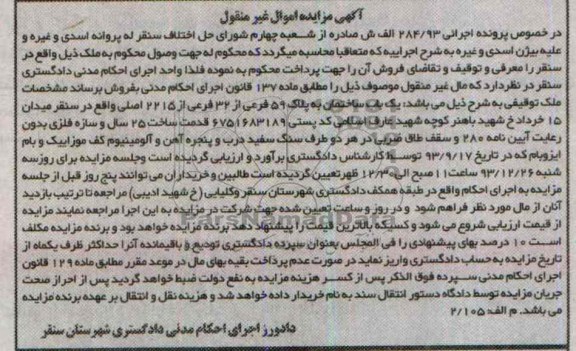 آگهی مزایده اموال غیر منقول
در خصوص پرونده اجرائی ۲۸۴/۹۳ الف ش صادره از شعبه چهارم شورای حل اختلاف سنقر له پروانه اسدی و غیره و
علیه بیژن اسدی و غیره به شرح اجراییه که متعاقبا محاسبه میگردد که محکوم له جهت وصول محکوم به ملک ذیل واقع در
سنقر را معرفی و توقیف و تقاضای فروش آن را جهت پرداخت محکوم به نموده فلذا واحد اجرای احکام مدنی دادگستری
سنقر در نظر دارد که مال غیر منقول موصوف ذیل را مطابق ماده ۱۳۷ قانون اجرای احکام مدنی بفروش برساند مشخصات
ملک توقیفی به شرح ذیل می باشد: یک باب ساختمان به پلاک ۵۹ فرعی از ۳۲ فرعی از ۲۲۱۵ اصلی واقع در سنقر میدان
۱۵ خرداد خ شهید باهنر کوچه شهید عارف اسلامی کد پستی ۶۷۵۱۶۸۳۱۸۹ قدمت ساخت ۲۵ سال و سازه فلزی بدون
رعایت آیین نامه ۲۸۰ و سقف طاق ضربی در هر دو طرف سنگ سفید درب و پنجره آهن و آلومینیوم کف موزاییک و بام
ایزوبام که در تاریخ ۹۳/۹/۱۷ توسط کارشناس دادگستری برآورد و ارزیابی گردیده است وجلسه مزایده برای روز سه
شنبه ۹۳/۱۲/۲۶ ساعت ۱۱ صبح الی ۱۲/۳۰ ظهر تعیین گردیده است طالبین و خریداران می توانند پنج روز قبل از جلسه
مزایده به اجرای احکام واقع در طبقه همکف دادگستری شهرستان سنقر وکلیایی (خ شهید ادیبی) مراجعه تا ترتیب بازدید
آنان از مال مورد نظر فراهم شود و در روز و ساعت تعیین شده جهت شرکت در مزایده به این اجرا مراجعه نمایند مزایده
از قیمت ارزیابی شروع می شود و کسیکه بالاترین قیمت را پیشنهاد دهد برنده مزایده خواهد بود و برنده مزایده مکلف
است ۱۰ درصد بهای پیشنهادی را فی المجلس بعنوان سپرده دادگستری تودیع و باقیمانده آنرا حداکثر ظرف یکماه از
تاریخ مزایده به حساب دادگستری واریز نماید در صورت عدم پرداخت بقیه بهای مال در موعد مقرر مطابق ماده ۱۲۹ قانون
اجرای احکام مدنی سپرده فوق الذکر پس از کسر هزینه مزایده به نفع دولت ضبط خواهد گردید پس از احراز صحت
جریان مزایده توسط دادگاه دستور انتقال سند به نام خریدار داده خواهد شد و هزینه نقل و انتقال بر عهده برنده مزایده
می باشد. م الف: ۲/۱۰۵
دادورز اجرای احکام مدنی دادگستری شهرستان سنقر